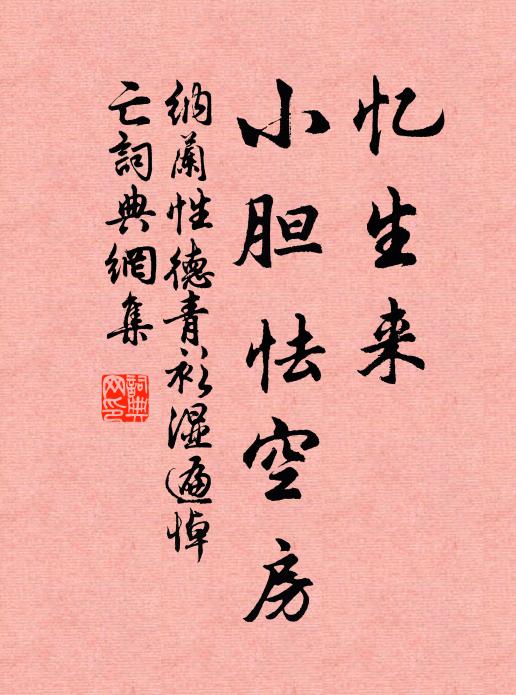 忆生来
小胆怯空房
纳蘭性德青衫湿遍悼
亡詞典網集
詞典
网印